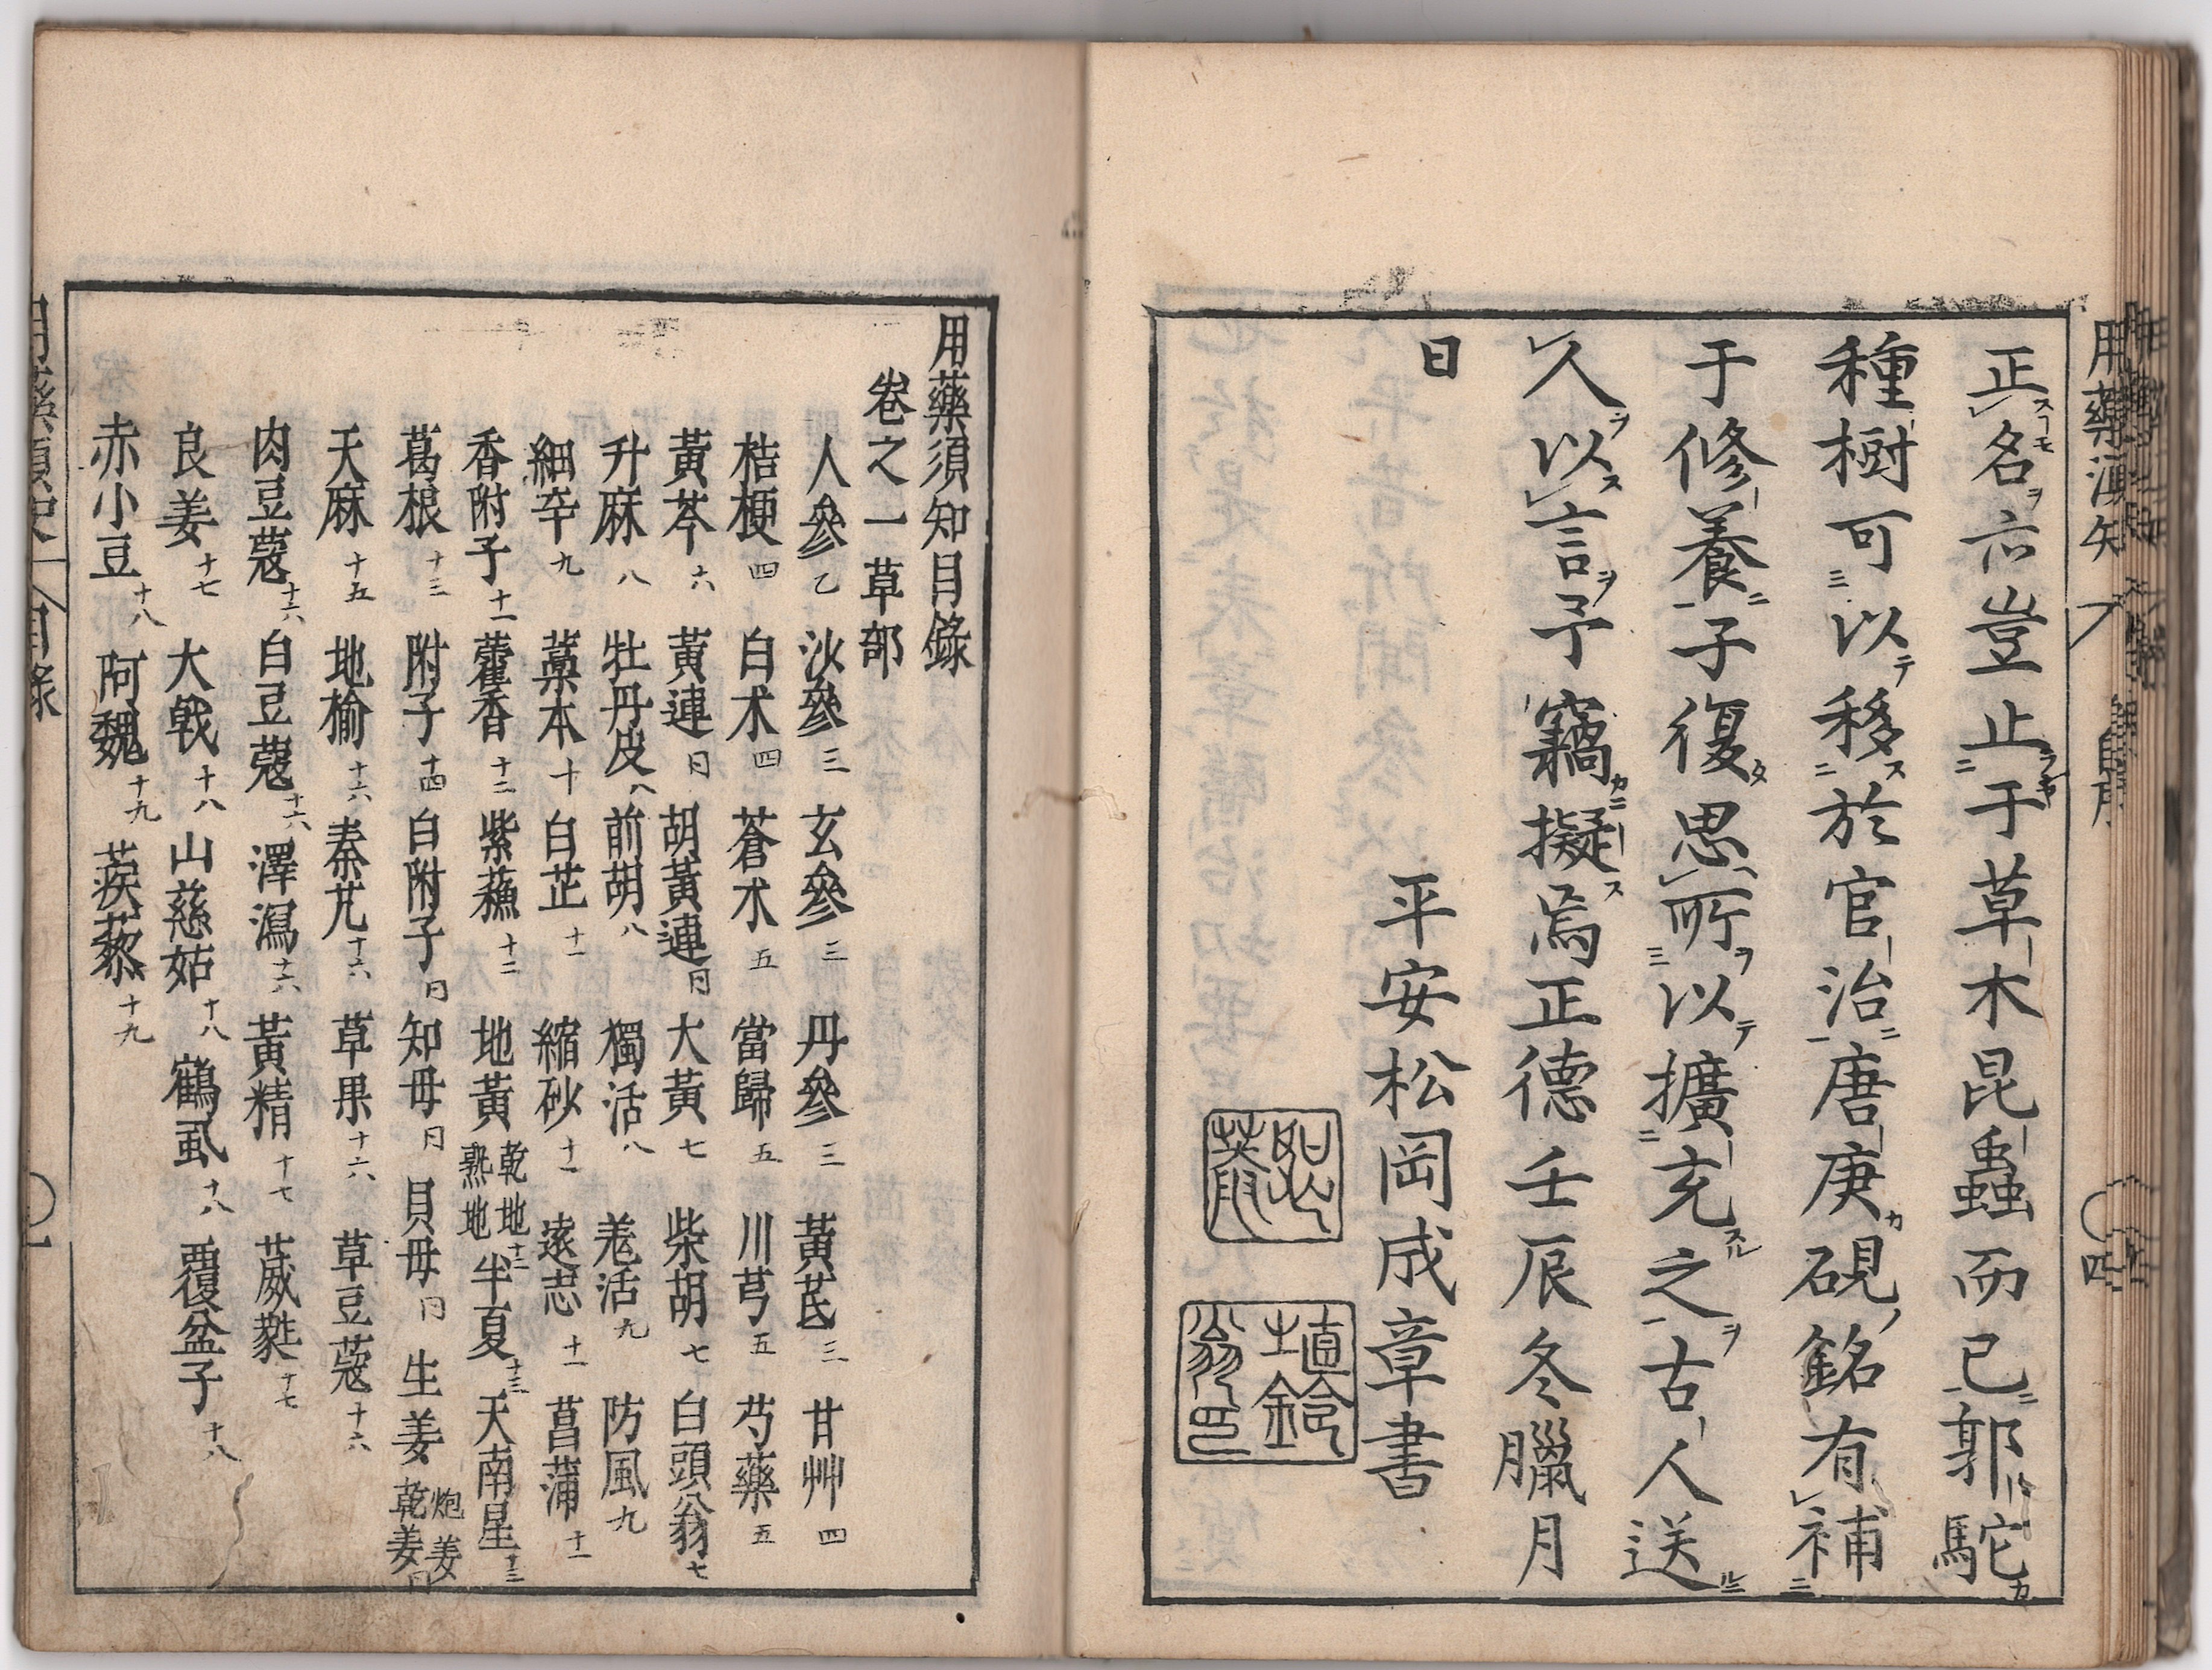 用藥須知
自序
四
正名亦豈止于草木昆蟲而已郭駝
種樹可以移於官治唐庚硯銘有補
于修養子復思所以擴充之古人送
人以言予竊擬焉正德壬辰冬臘月
日
平安松岡成章書
怡顔
填鈴
翁印
用藥須知目錄
卷之一草部
人參 乙 沙參 三 玄參 三 丹參 三 黃芪 三 甘艸 四
桔梗 四 白朮 四 蒼朮 五 當歸 五 川芎 五 芍藥 五
黃芩 六 黃連 同 胡黃連 同 大黃 七 柴胡 七 白頭翁 七
升麻 八 牡丹皮 八 前胡 八 獨活 八 羌活 九 防風 九
細辛 九 藁本 十 白芷 十一 縮砂 十一 遠志 十一 菖蒲 十一
香附子 十一 藿香 十二 紫蘓 十二 地黃 乾地 熟地 十二 半夏 十三 天南星 十三
葛根 十三 附子 十四 白附子 同 知母 同 貝母 同 生姜 炮姜 乾姜 同
天麻 十五 地榆 十六 秦艽 十六 草果 十六 草豆蔻 十六
肉豆蔻 十六 白豆蔻 十六 澤瀉 十六 黃精 十七 葳蕤 十七
良姜 十七 大戟 十八 山慈姑 十八 鶴虱 十八 覆盆子 十八
赤小豆 十八 阿魏 十九 蒺藜 十九
用藥須知
目錄